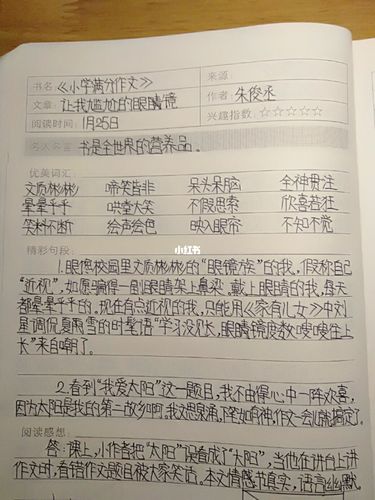 书名：《小学满分作文》 来源：
文章：让我尴尬的眼睛镜 作者：朱俊丞
阅读时间：1月25日 兴趣指数：☆☆☆☆☆
名人名言 书是全世界的营养品。
优美词汇：
文质彬彬 啼笑皆非 呆头呆脑 全神贯注
晕晕乎乎 哄堂大笑 不假思索 欣喜若狂
笑料不断 绘声绘色 映入眼帘 不知不觉
小红书
精彩句段：
1.眼馋校园里文质彬彬的“眼镜族”的我，假称自己
“近视”，如愿骗得一副眼睛架上鼻梁。戴上眼睛的我，每天
都晕晕乎乎的。现在有点近视的我，只能用《家有儿女》中刘
星调侃夏雨雪的时髦语“学习没见长，眼睛镜度数嗖嗖往上
长”来自嘲了。
2.看到“我爱太阳”这一题目，我不由得心中一阵欢喜，
因为太阳是我的第二故乡啊。我文思泉涌，下笔如有神，作文一会儿就搞定了。
阅读感想：
答：课上，小作者把“太阳”误看成了“太阳”，当他在讲台上讲
作文时，看错作文题目被大家笑话。本文情感节真实，语言幽默。